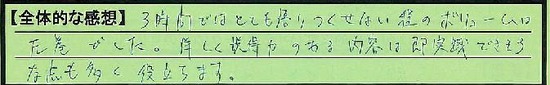 【全体的な感想】3時間ではとても語りつくせない程のボリュームは
圧巻でした。詳しく説得力のある内容は即実践できそう
な点も多く役立ちます。